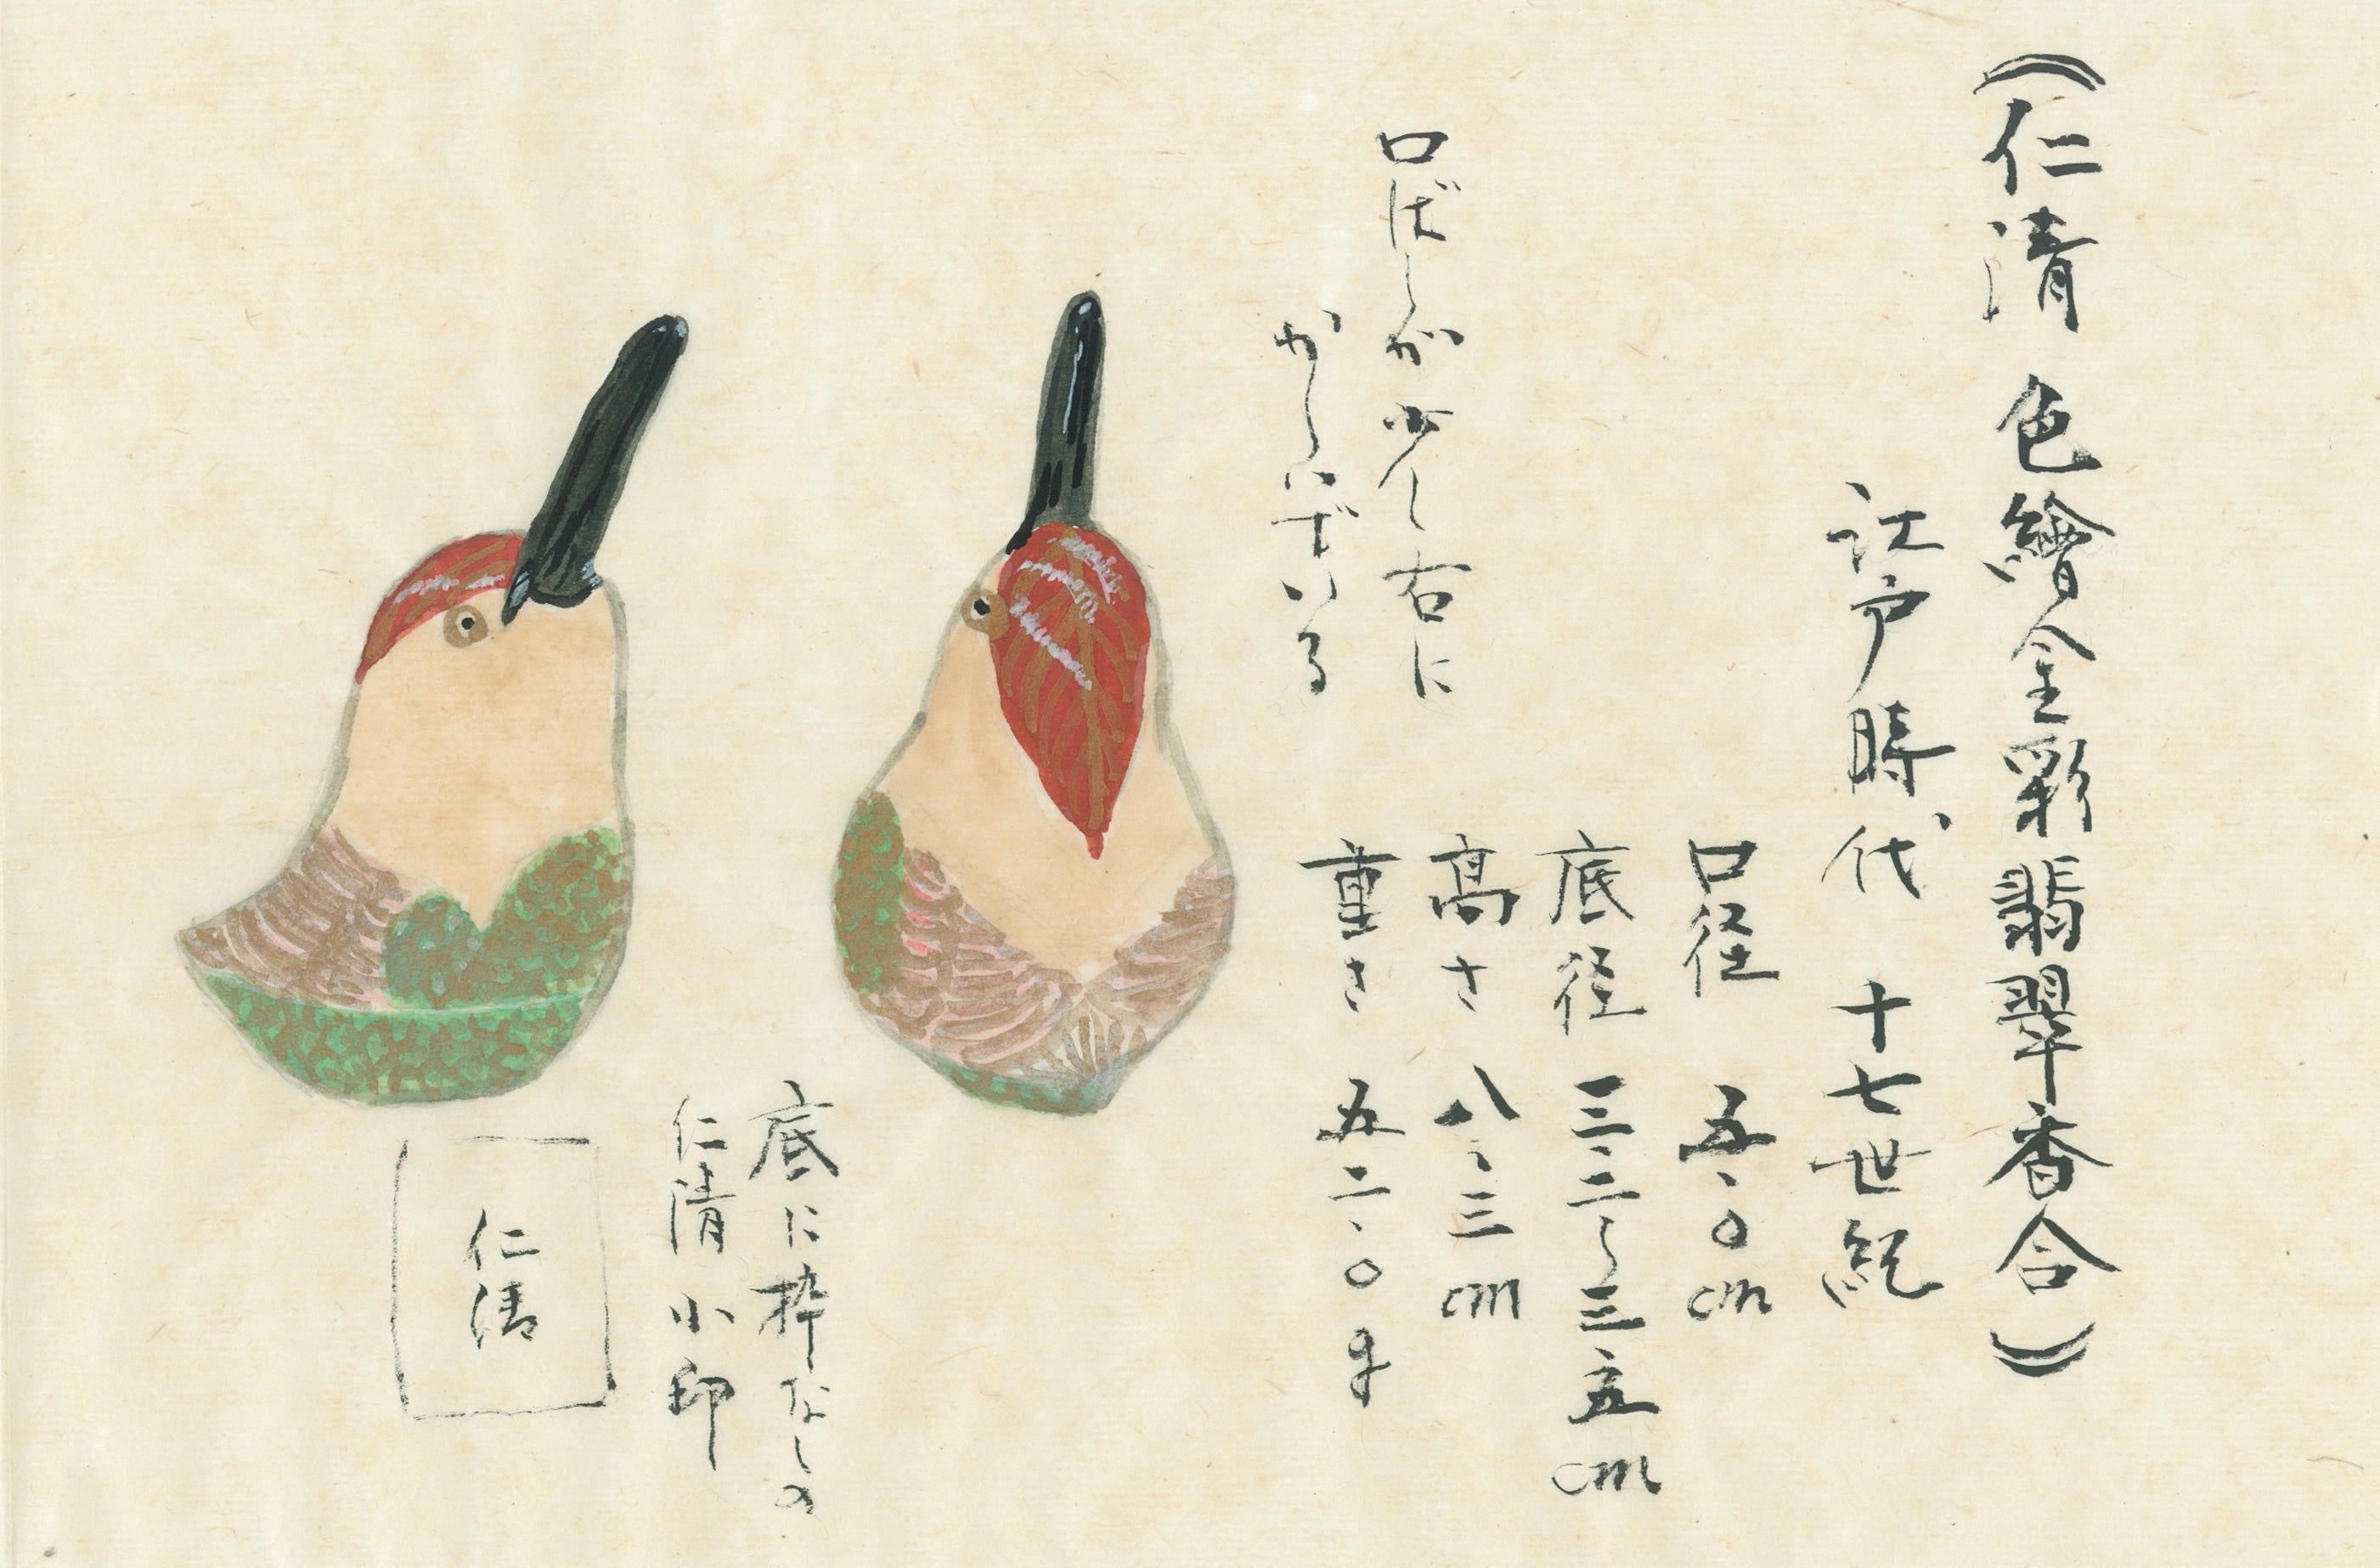 (仁清 色繪金彩翡翠香合)
江戸時代 十七世紀
口径 五.0cm
底径 三.二〜三.五cm
高さ 八.三cm
重さ 五二.0g
口ばしが少し右に
かしいでいる
底に枠なしの
仁清小印
仁清